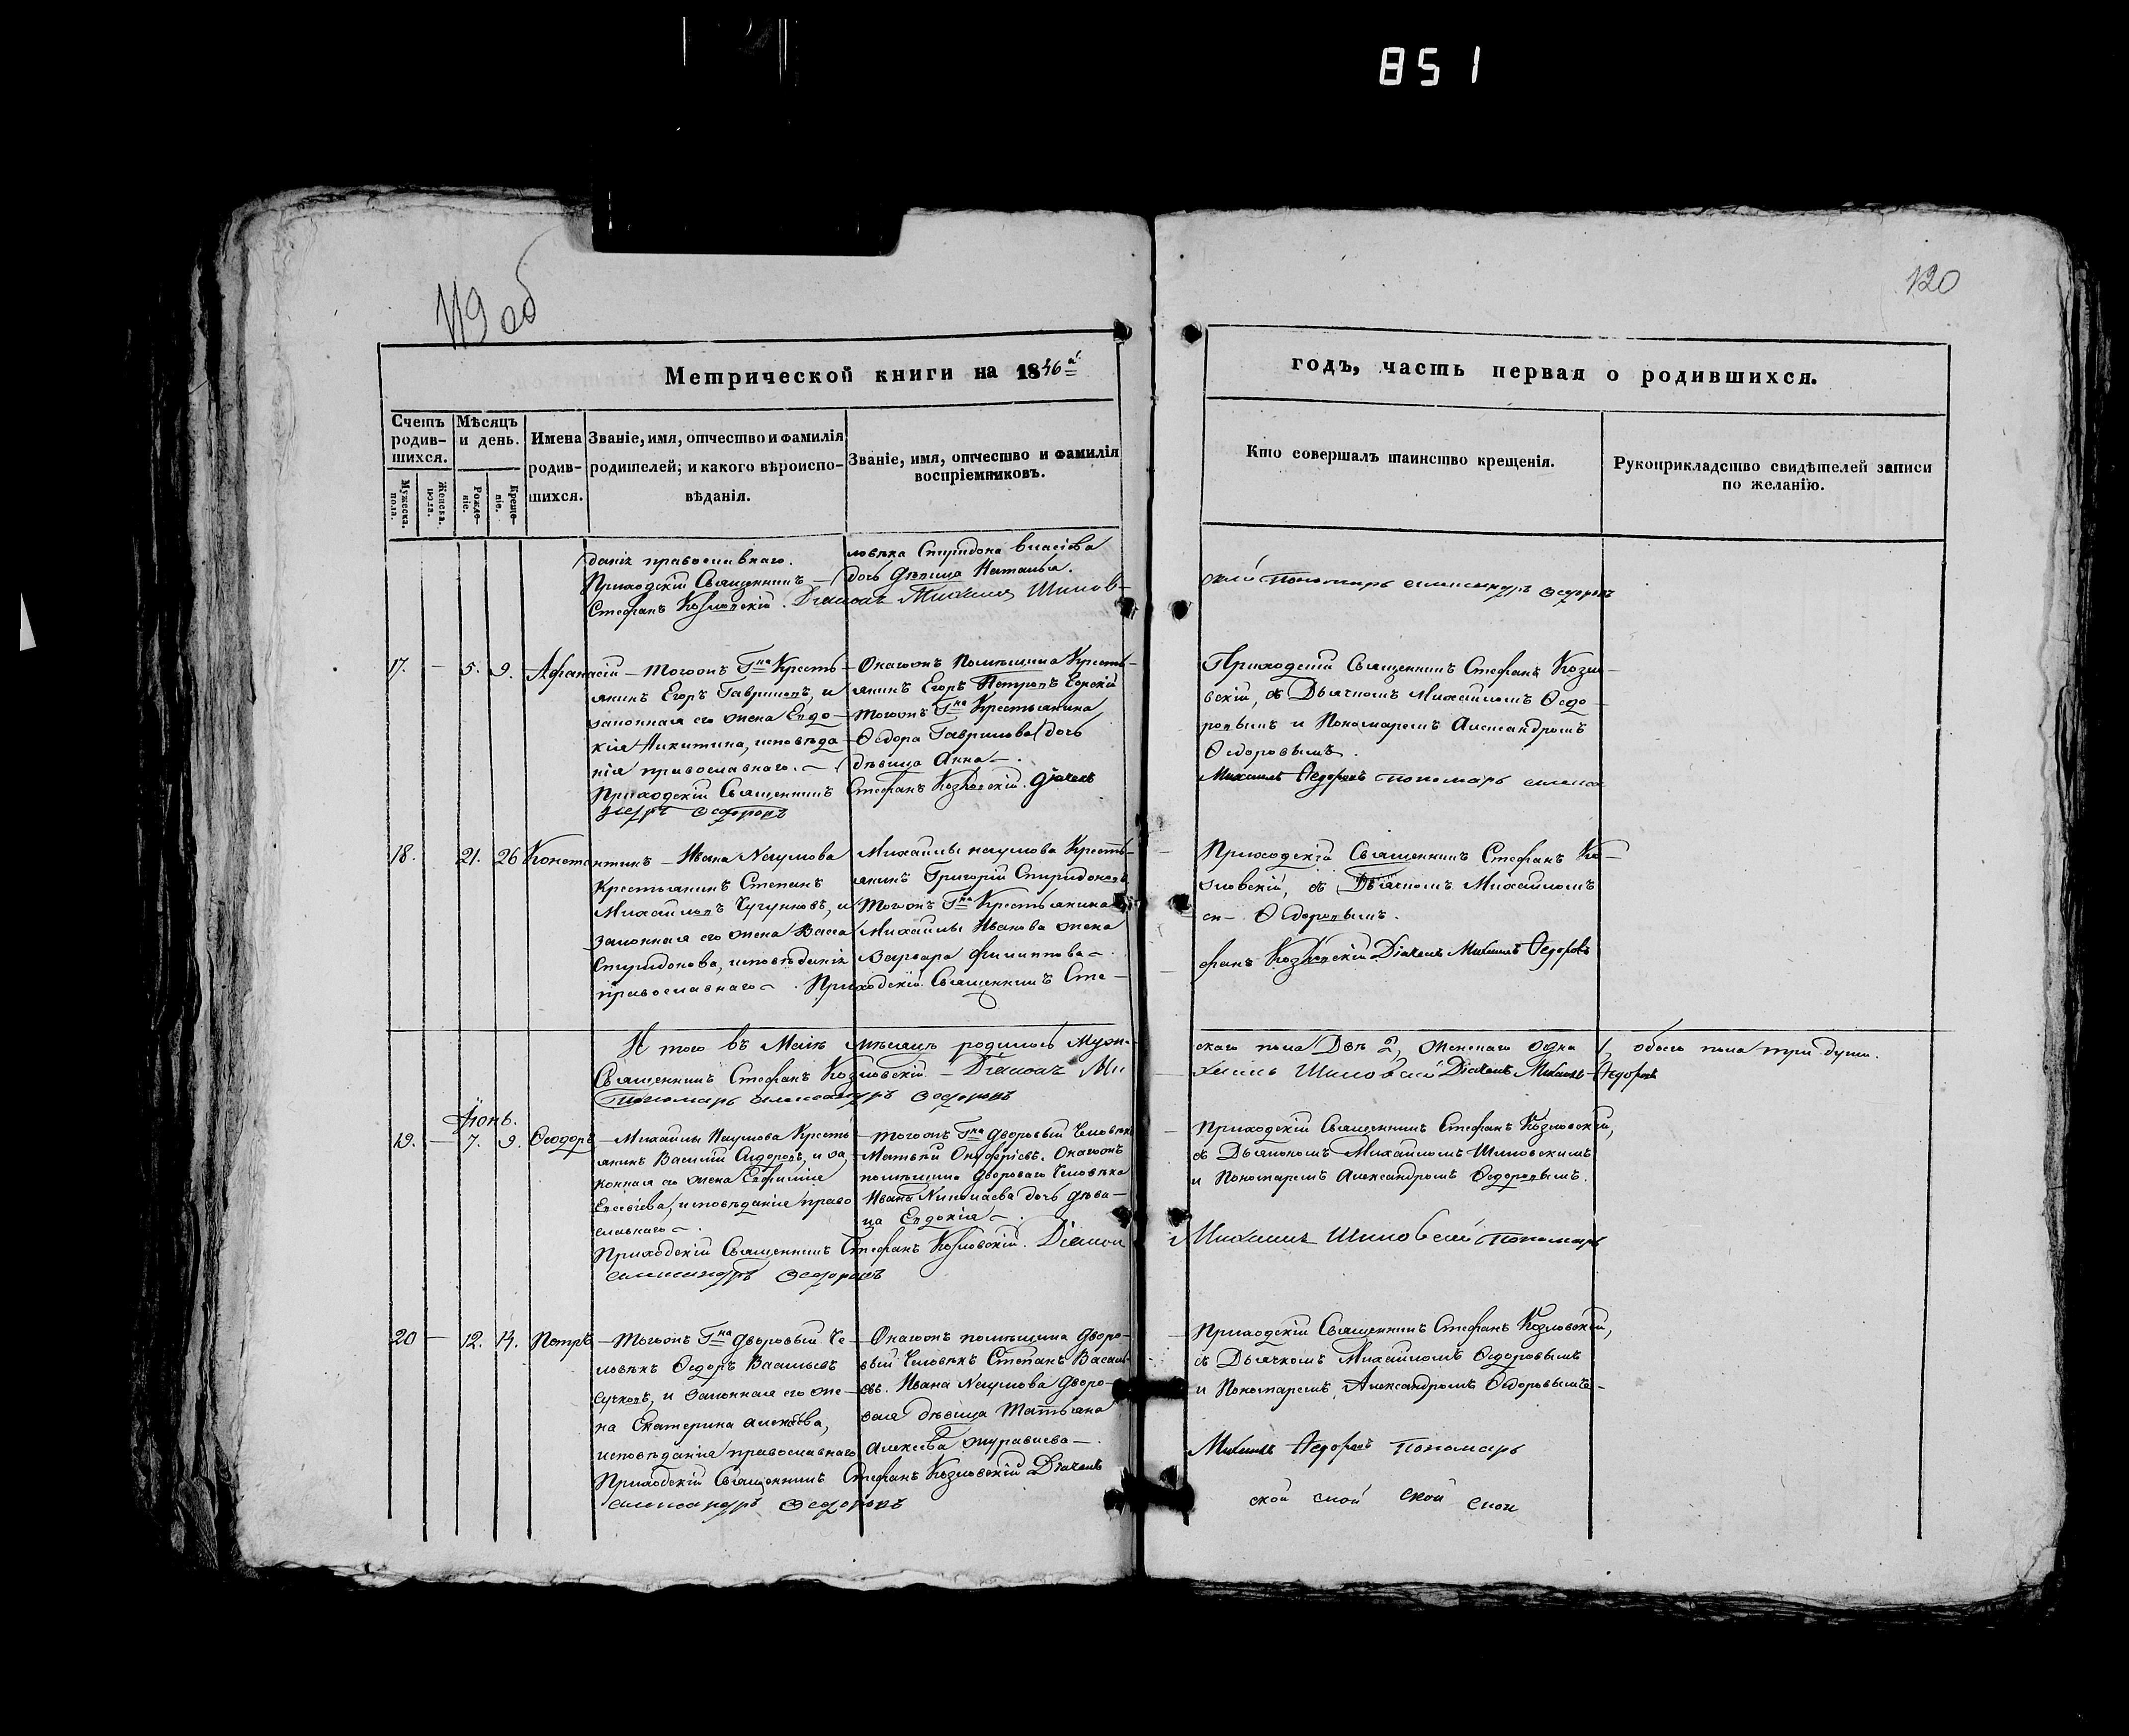 851
119 об
120
Метрической книги на 1846й
годъ, часть первая о родившихся.
Счетъ родив-шихся.
Мѣсяцъ и день.
Имена родив-шихся.
Званіе, имя, отчество и фамилія родителей; и какого вѣроиспо-вѣданія.
Званіе, имя, отчество и фамилія воспріемниковъ.
Кто совершалъ таинство крещенія.
Рукоприкладство свидѣтелей записи по желанію.
Мужеска. пола.
Женска. пола.
Рожде-ніе.
Креще-ніе.
даніе православнаго.
Приходскій Священникъ
Стефанъ Козловскій. Діаконъ Михаилъ Шилов-
ловѣка Спиридона Власіева
дочь Дѣвица Наталья.
скій Пономарь Александръ Ѳедоровъ
17. — 5. 9. Афанасій
Тогожъ Гна Кресть-
янинъ Егоръ Гавриловъ, и
законная его жена Евдо-
кія Никитина, исповѣда-
нія православнаго.
Приходскій Священникъ Стефанъ Козловскій. Дьячекъ
Онагожъ Помѣщика Кресть-
янинъ Егоръ Петровъ
тогожъ Гна Крестьянина
Ѳедора Гаврилова дочь
дѣвица Анна.
Приходскій Священникъ Стефанъ Козло-
вскій, съ Дьячкомъ Михаиломъ Ѳедо-
ровымъ и Пономаремъ Александромъ
Ѳедоровымъ.
Михаилъ Ѳедоровъ пономарь Алекса
ндръ Ѳедоровъ
18. 21. 26 Константинъ
Ивана Наумова
Крестьянинъ Степанъ
Михаиловъ Чугунковъ, и
законная его жена Васса
Спиридонова, исповѣданія
православнаго. Приходскій Священникъ Сте-
Михаилы Наумова Кресть-
янинъ Григорій Спиридоновъ
Тогожъ Гна Крестьянина
Михаилы Иванова жена
Варвара Филиппова.
Приходскій Священникъ Стефанъ Ко-
зловскій, съ Дьячкомъ Михаиломъ
Ѳедоровымъ.
фанъ Козловскій Дьячекъ Михаилъ Ѳедоровъ
И того въ Маіѣ мѣсяцѣ родилось муж-
скаго пола Двѣ 2, женскаго одна 1, обоего пола три души.
Священникъ Стефанъ Козловскій Діаконъ Ми
хаилъ Шиловскій Дьячекъ Михаилъ Ѳедоровъ
Пономарь Александръ Ѳедоровъ
Іюнь.
19. — 7. 9. Ѳеодоръ
Михаилы Наумова Кресть
янинъ Василій Сидоровъ, и за-
конная его жена Евфимія
Евсевіева, исповѣданія право
славнаго.
Приходскій Священникъ Стефанъ Козловскій. Діакон
тогожъ Гна дворовый Человѣкъ
Матвѣй Онуфріевъ. Онагожъ
помѣщика Двороваго Человѣка
Ивана Николаева дочь дѣви-
ца Евдокія.
Приходскій Священникъ Стефанъ Козловскій,
съ Дьякономъ Михаиломъ Шиловскимъ
и Пономаремъ Александромъ Ѳедоровымъ.
Михаилъ Шиловскій Пономарь
Александръ Ѳедоровъ
20 — 12. 14. Петръ
Тогожъ Гна Дворовый Че-
ловѣкъ Ѳедоръ Васильевъ
Сучковъ, и законная его же-
на Екатерина Алексѣева,
исповѣданія православнаго
Приходскій Священникъ Стефанъ Козловскій Дьячекъ
Онагожъ помѣщика Дворо-
вый Человѣкъ Степанъ Василь-
евъ. Ивана Наумова Дворо-
вая дѣвица Татьяна
Алексѣева Журавлева.
Приходскій Священникъ Стефанъ Козловскій,
съ Дьячкомъ Михаиломъ Ѳедоровымъ
и Пономаремъ Александромъ Ѳедоровымъ
Михаилъ Ѳедоровъ Пономарь
Александръ Ѳедоровъ
ской ской ской ской